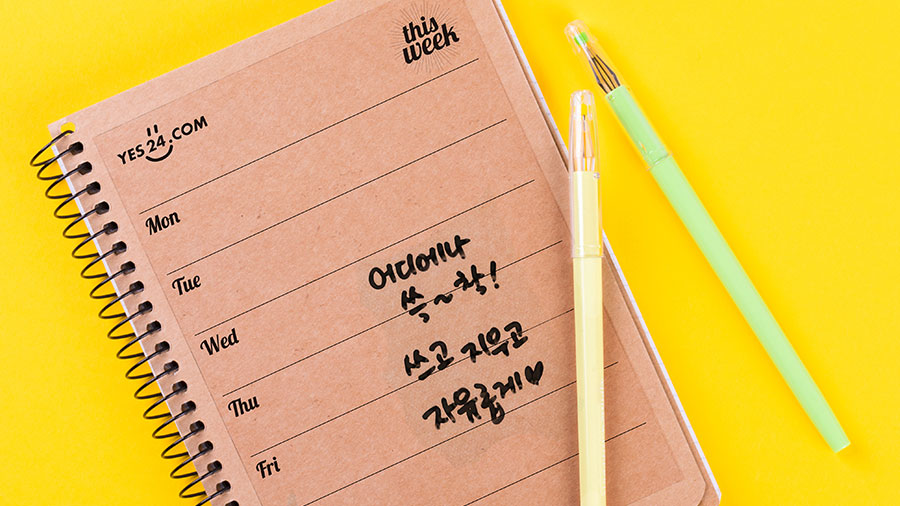 this
week
YES24.COM
Mon
Tue
어디에나
쓱~착!
Wed
쓰고 지우고
Thu
자유롭게♥
Fri